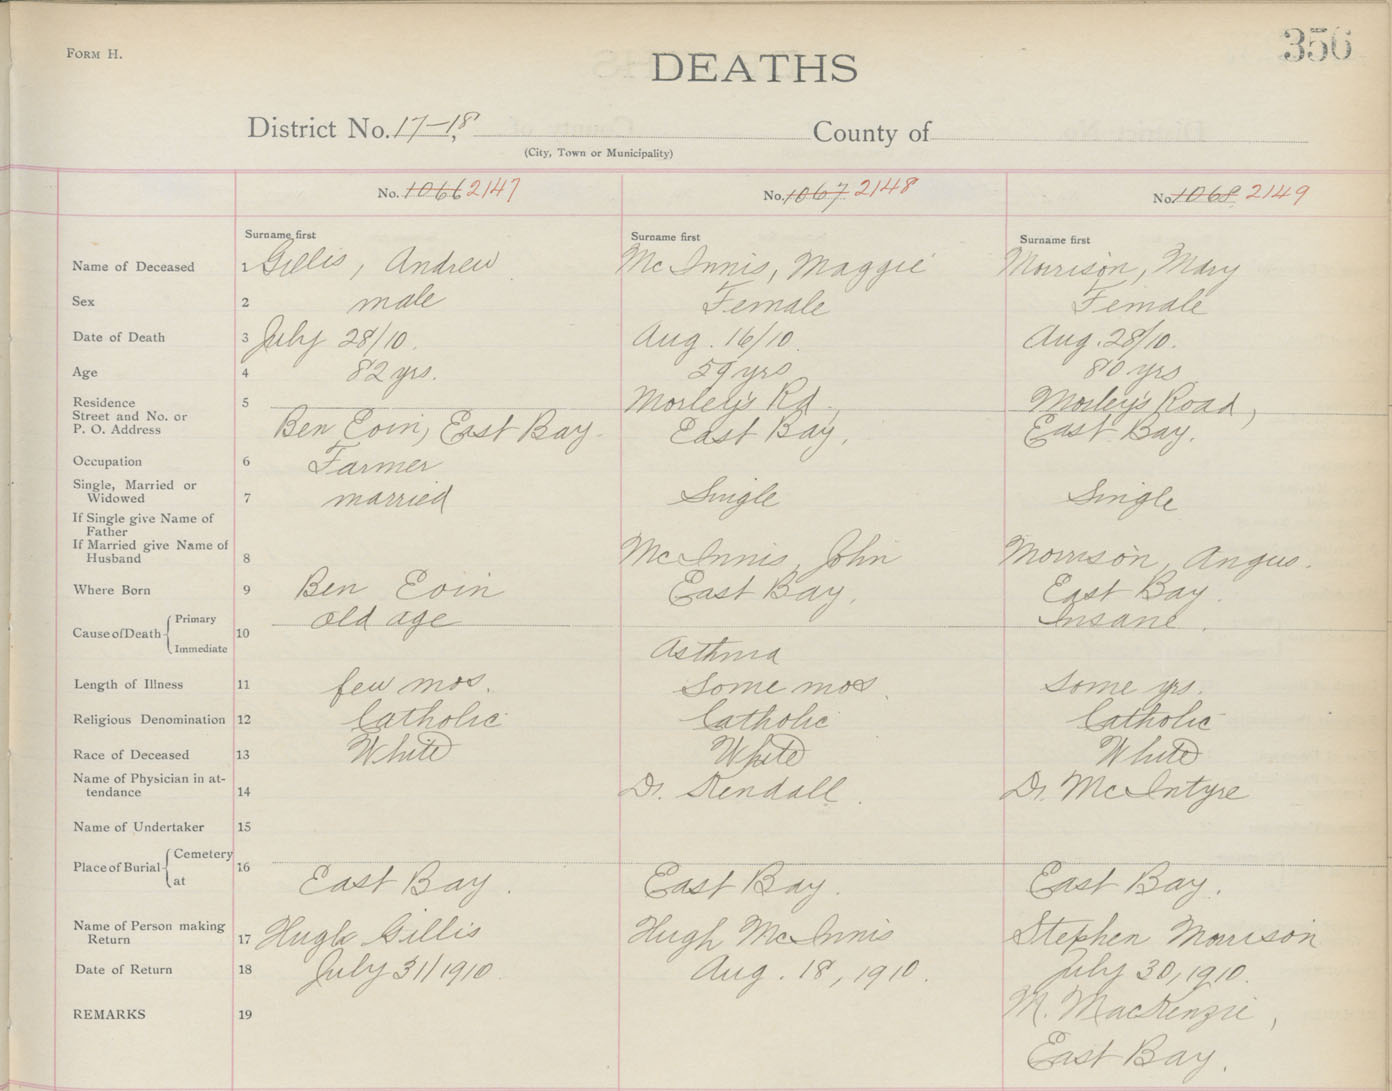 FORM H.
356
DEATHS
District No. 17-18 County of
(City, Town or Municipality)
No. 1066 2147 No. 1067 2148 No. 1068 2149
Surname first Surname first Surname first
Name of Deceased 1 Gillis, Andrew Mc Innis, Maggie Morrison, Mary
Sex 2 male Female Female
Date of Death 3 July 28/10. Aug. 16/10. Aug. 28/10.
Age 4 82 yrs. 59 yrs 80 yrs
Residence 5 Morley's Rd., Morley's Road,
Street and No. or
P. O. Address Ben Eoin, East Bay. East Bay. East Bay.
Occupation 6 Farmer
Single, Married or
Widowed 7 married Single Single
If Single give Name of
Father
If Married give Name of
Husband 8 McInnis, John Morrison, Angus.
Where Born 9 Ben Eoin East Bay. East Bay.
Cause of Death Primary 10 old age Insane.
Immediate Asthma
Length of Illness 11 few mos. Some mos. Some yrs.
Religious Denomination 12 Catholic Catholic Catholic
Race of Deceased 13 White White White
Name of Physician in at-
tendance 14 Dr. Kendall. Dr. McIntyre
Name of Undertaker 15
Place of Burial Cemetery 16
at East Bay. East Bay. East Bay.
Name of Person making
Return 17 Hugh Gillis Hugh McInnis Stephen Morrison
Date of Return 18 July 31/1910. Aug. 18, 1910. July 30, 1910.
REMARKS 19 M. MacKenzie,
East Bay.